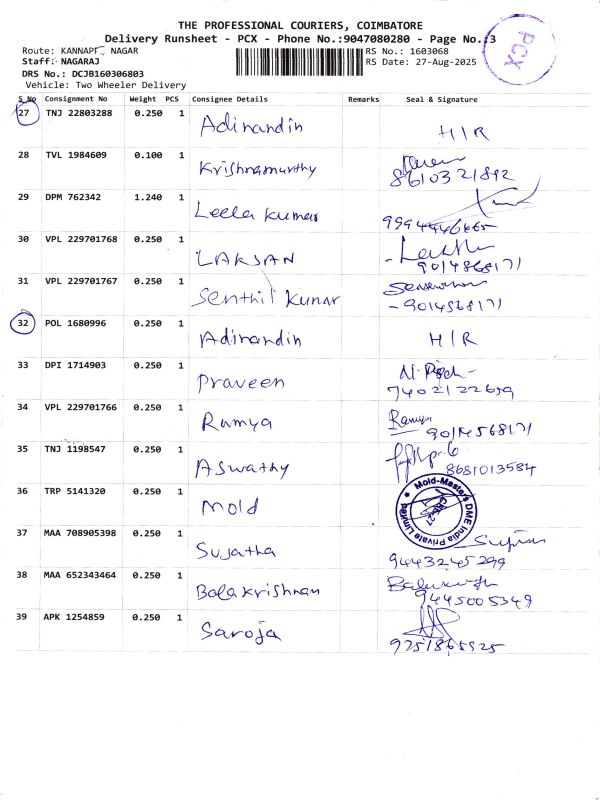 THE PROFESSIONAL COURIERS, COIMBATORE
Delivery Runsheet - PCX - Phone No.:9047080280 - Page No.:3
PCX
Route: KANNAPPA NAGAR
RS No.: 1603068
Staff: NAGARAJ
RS Date: 27-Aug-2025
DRS No.: DCJB160306803
Vehicle: Two Wheeler Delivery
S_No Consignment No Weight PCS Consignee Details Remarks Seal & Signature
27 TNJ 22803288 0.250 1 Adinandin H/R
28 TVL 1984609 0.100 1 Krishnamurthy
8610321892
29 DPM 762342 1.240 1 Leela Kumar
9994446665
30 VPL 229701768 0.250 1 LAKSAN
9014868171
31 VPL 229701767 0.250 1 Senthil Kumar
-9014568171
32 POL 1680996 0.250 1 Adinandin H/R
33 DPI 1714903 0.250 1 Praveen
7402122659
34 VPL 229701766 0.250 1 Ramya Ramya
9014568171
35 TNJ 1198547 0.250 1 Aswathy
8681013584
36 TRP 5141320 0.250 1 Mold
Mold-Masters DME India Private Limited
37 MAA 708905398 0.250 1 Sujatha
9443245299
38 MAA 652343464 0.250 1 Balakrishnan
9445005349
39 APK 1254859 0.250 1 Saroja
9751865525